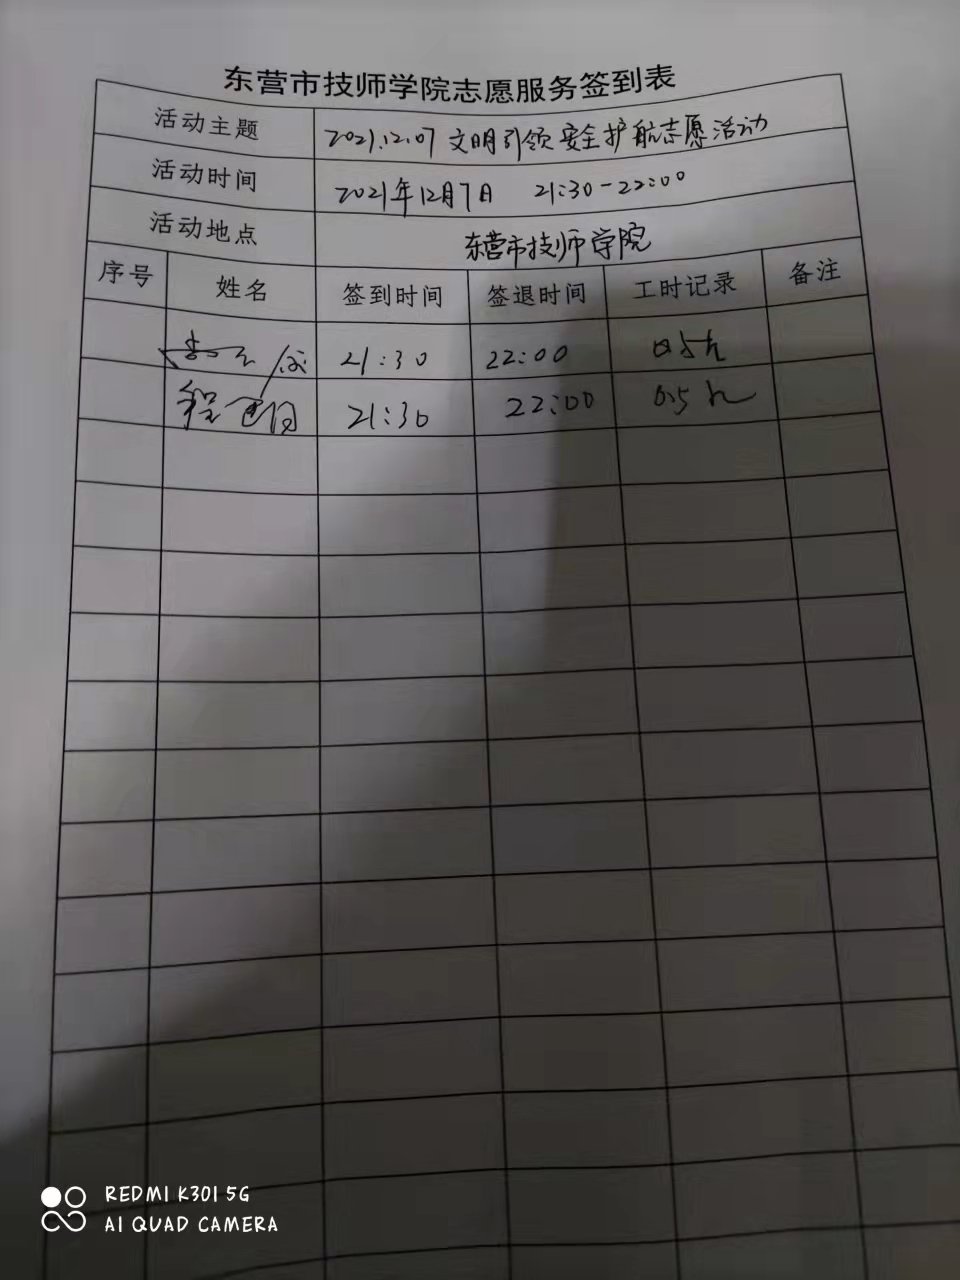 东营市技师学院志愿服务签到表
活动主题 2021.12.07 文明引领安全护航志愿活动
活动时间 2021年12月7日 21:30-22:00
活动地点 东营市技师学院
序号 姓名 签到时间 签退时间 工时记录 备注
21:30 22:00 0.5h
程 21:30 22:00 0.5h
REDMI K30I 5G
AI QUAD CAMERA